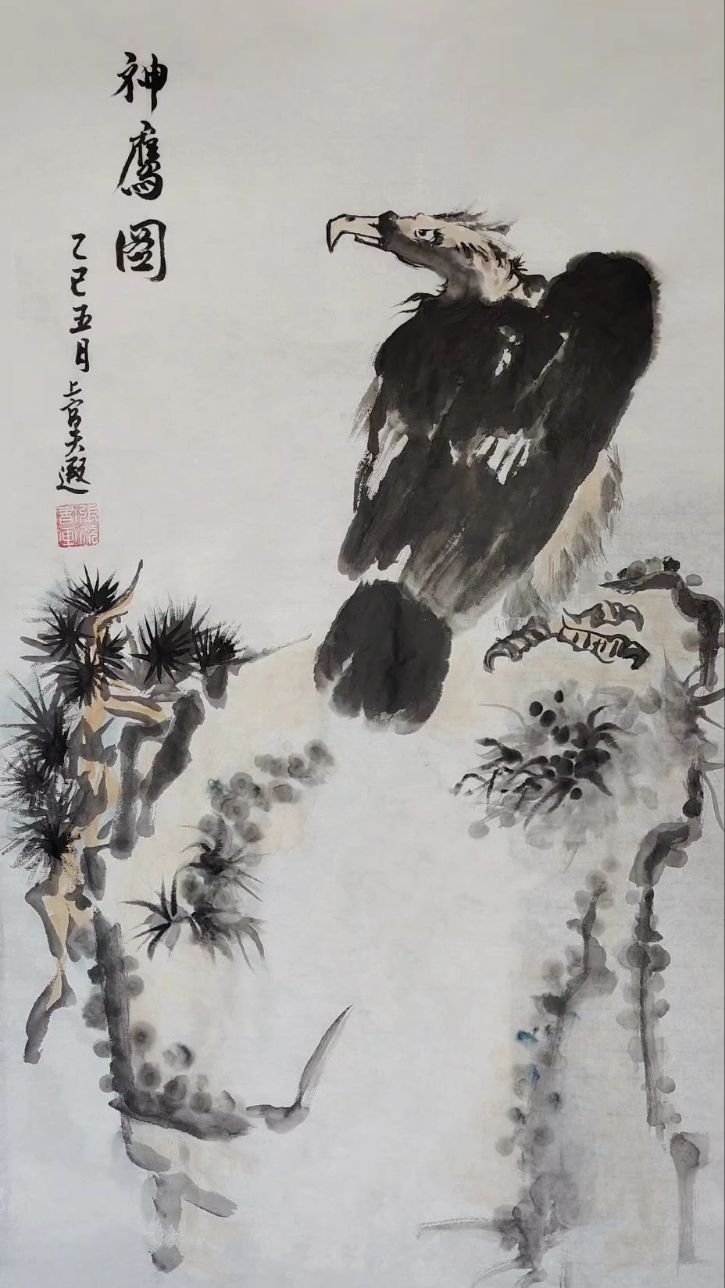 神鷹圖
乙巳五月上官天遐